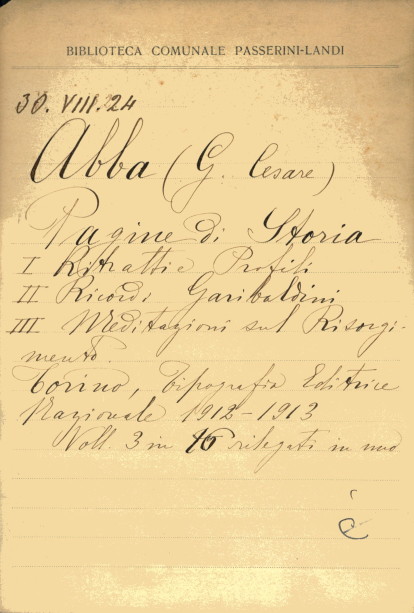 BIBLIOTECA COMUNALE PASSERINI-LANDI
30. VIII. 24
Abba (G. Cesare)
Pagine di Storia
I Ritratti e Profili
II Ricordi Garibaldini
III Meditazioni sul Risorgi-
mento.
Torino, Tipografia Editrice
Nazionale 1912-1913
Voll. 3 in 16 rilegati in uno